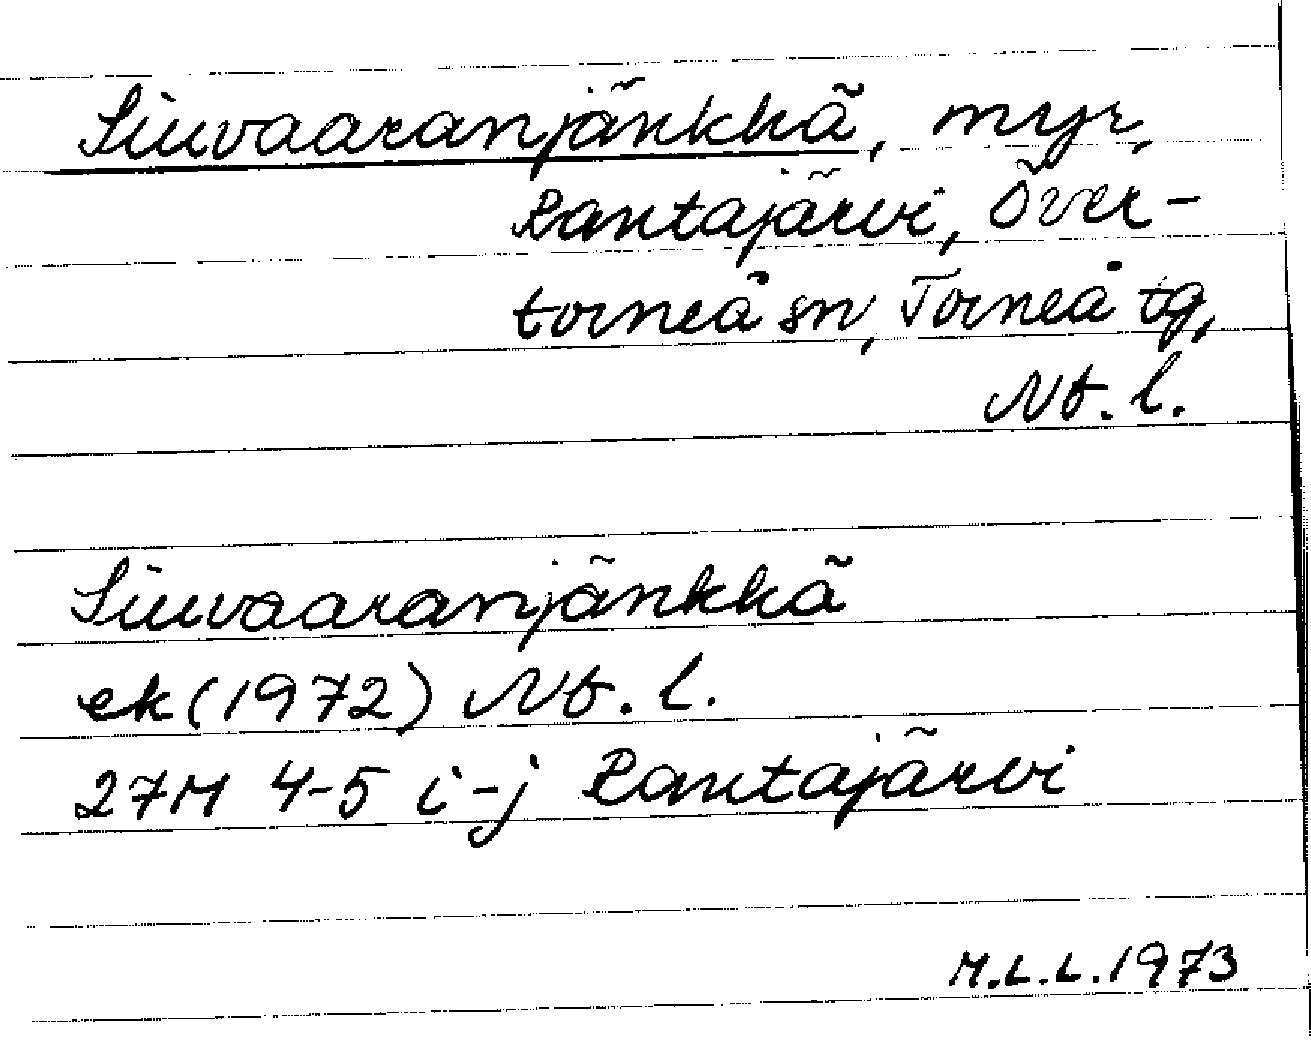 Siuvaaranjänkkä, myr,
Rantajärvi, Över-
torneå sn, Torneå tg,
Nb. l.
Siuvaaranjänkkä
ek (1972) Nb. l.
27M 4-5 i-j Rantajärvi
M.L.L. 1973